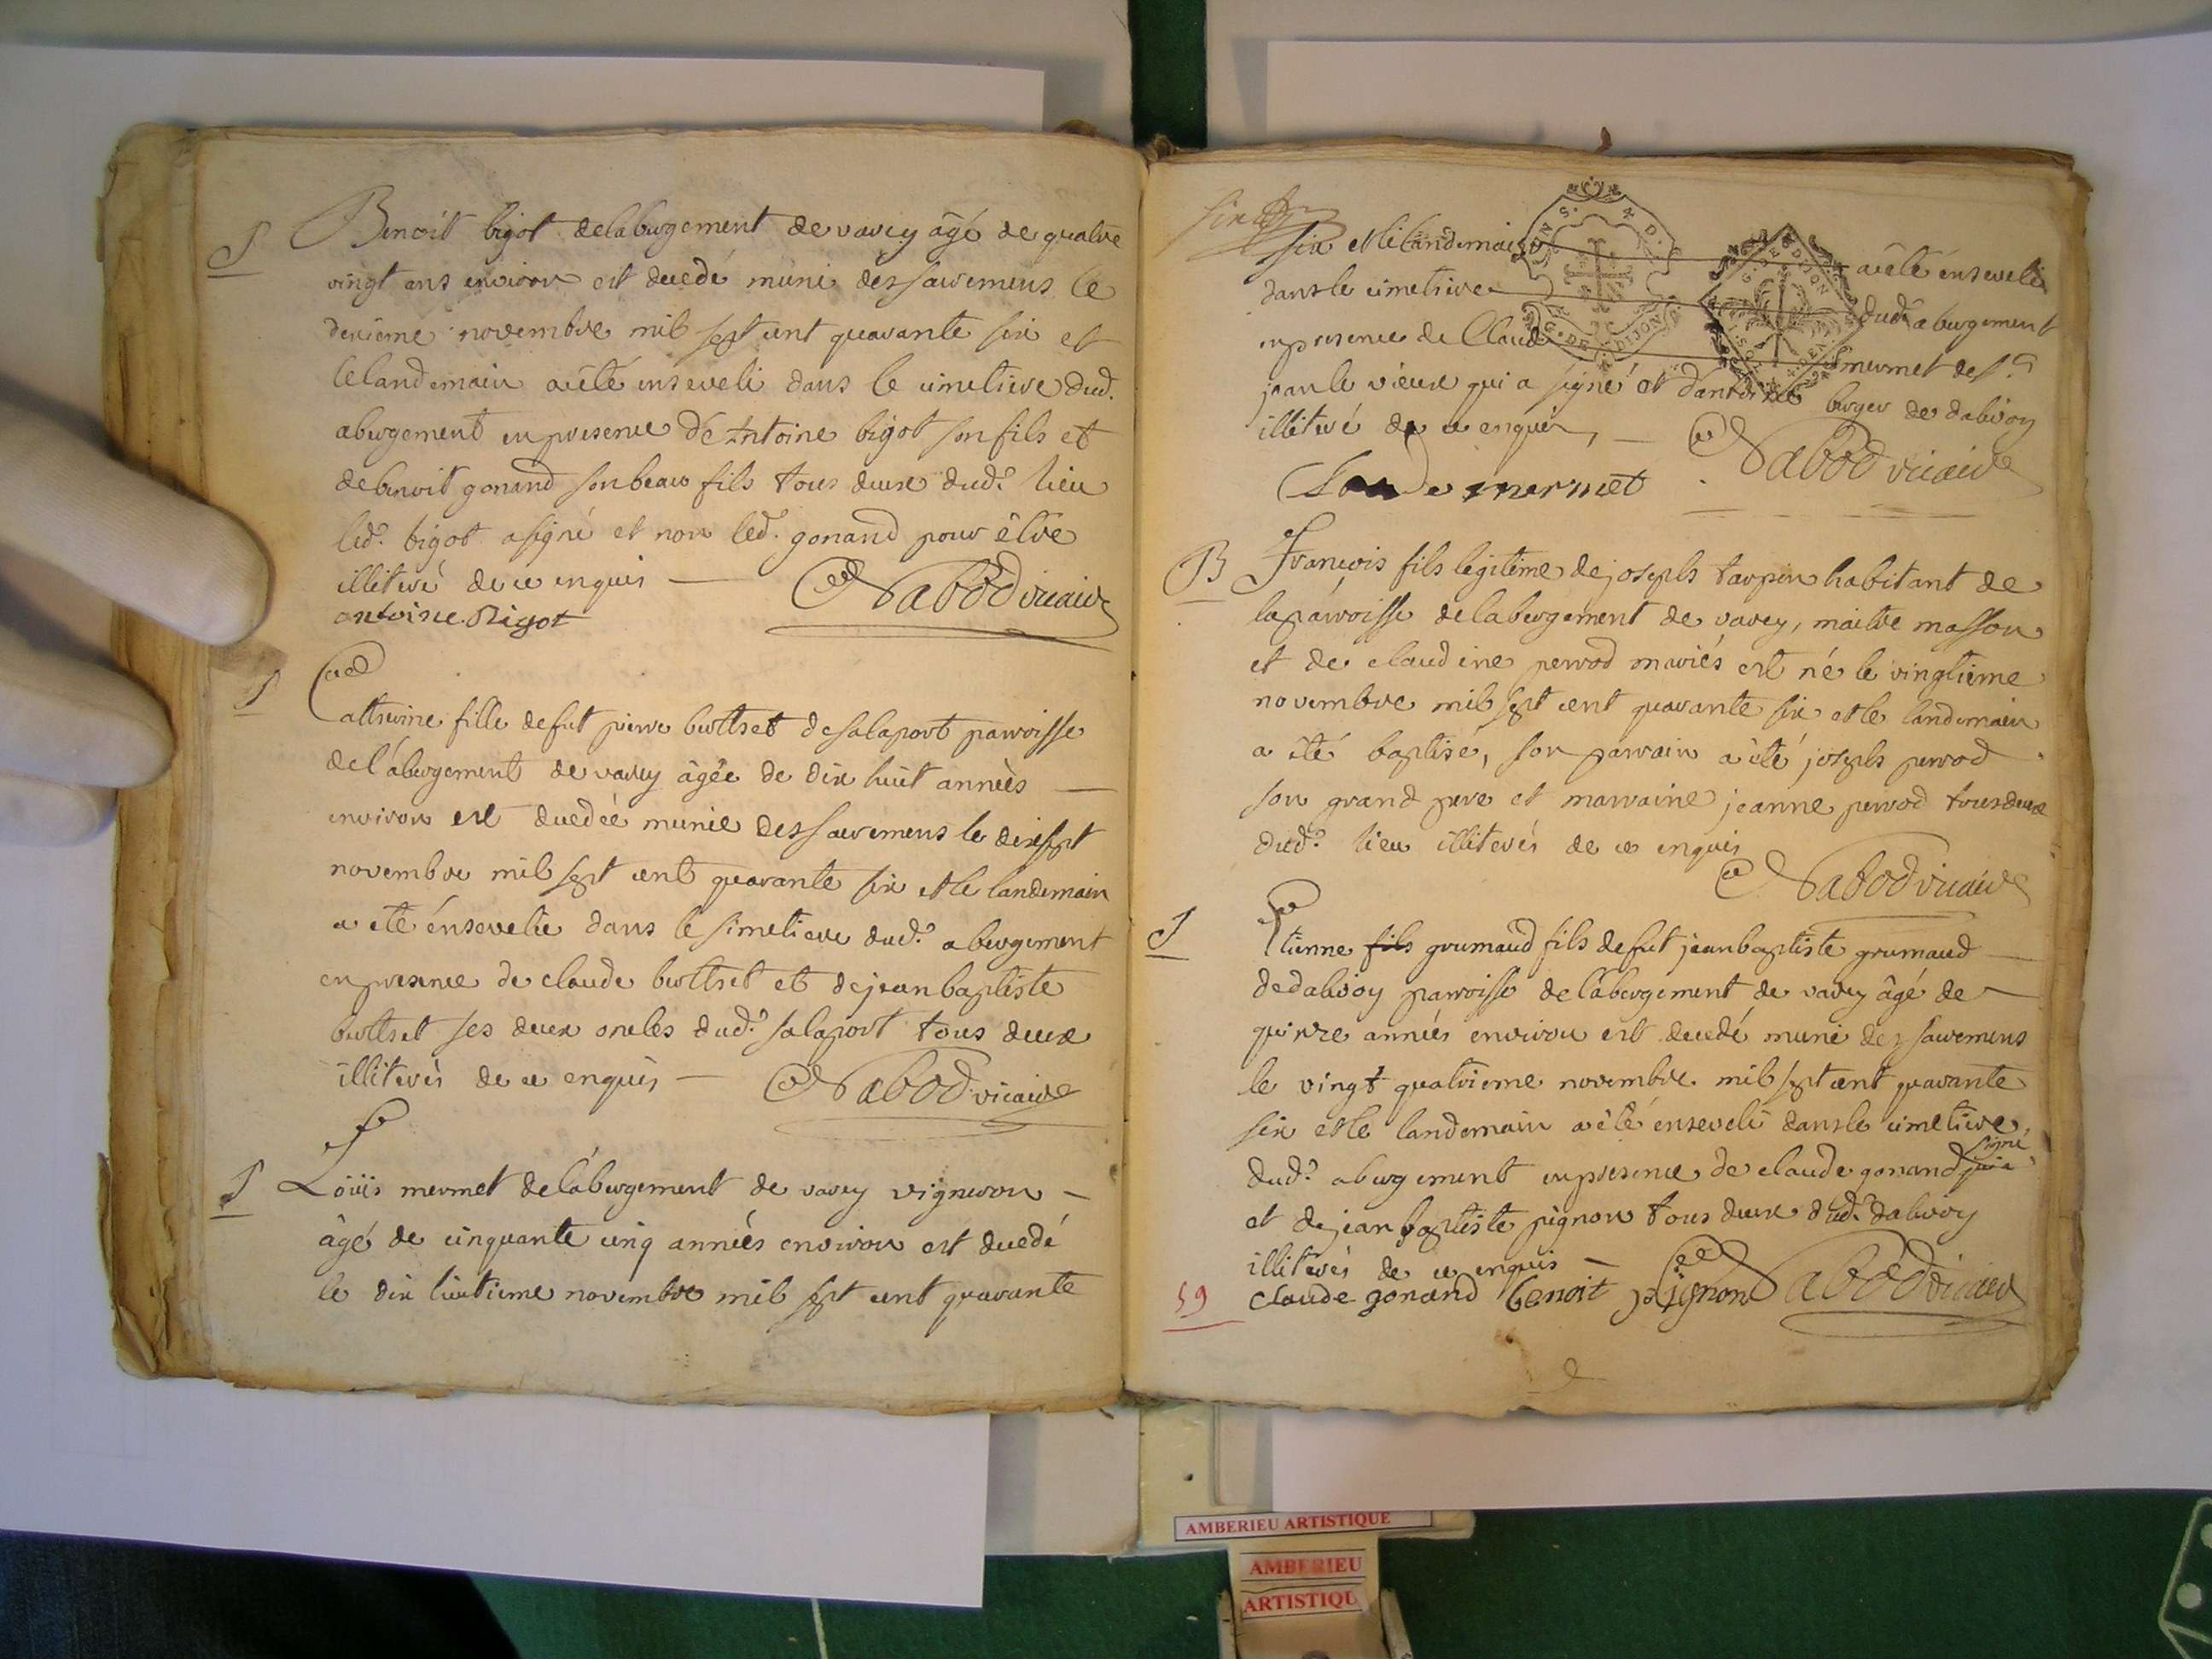 S
Benoit bigot delabergement de varey âgé de quatre
vingt ans environ est decedé muni des sacremens le
dexieme novembre mil sept cent quarante six et
le landemain a été enseveli dans le cimetiere dud.
abergement en presence de Antoine bigot son fils et
de benoit gonand son beau fils tous deux dud. lieu
led. bigot a signé et non led. gonand pour être
illiteré de ce enquis — Nabod vicaire
antoine Bigot
S
Catherine fille de fut pierre berthet de salaport parroisse
de l'abergement de varey âgée de dix huit années —
environ est decedée munie des sacremens le dixsept
novembre mil sept cent quarante six et le landemain
a été énsevelie dans le simetiere dud. abergement
en presence de claude berthet et de jean baptiste
berthet ses deux oncles dud. salaport tous deux
illiterés de ce enquis — Nabod vicaire
S
Loüis mermet de l'abergement de varey vigneron —
âgé de cinquante cinq années environ est decedé
le dix huitieme novembre mil sept cent quarante
six et le landemain a été énseveli
dans le cimetiere dud. abergement
en presence de Claude mermet de St.
jean le vieux qui a signé et d'antoine berger de dalivoy
illiteré de ce enquis, — Nabod vicaire
Claude mermet
GEN. DE DIJON
G. DE DIJON
B
François fils legitime de joseph tarpin habitant de
la parroisse delabergement de varey, maitre masson
et de claudine perrod mariés est né le vingtieme
novembre mil sept cent quarante six et le landemain
a été baptisé, son parrain a été joseph perrod
son grand pere et marraine jeanne perrod tous deux
dud. lieu illiterés de ce enquis
Nabod vicaire
S
Etienne fils grumaud fils de fut jean baptiste grumaud
de dalivoy parroisse de l'abergement de varey âgé de
quinze années environ est decedé muni des sacremens
le vingt quatrieme novembre mil sept cent quarante
six et le landemain a été enseveli dans le cimetiere
signé
dud. abergement en presence de claude gonand qui a
et de jean baptiste pignon tous deux dud. dalivoy
illiterés de ce enquis —
59 claude gonand benoit pignon Nabod vicaire
AMBERIEU ARTISTIQUE
AMBERIEU
ARTISTIQU